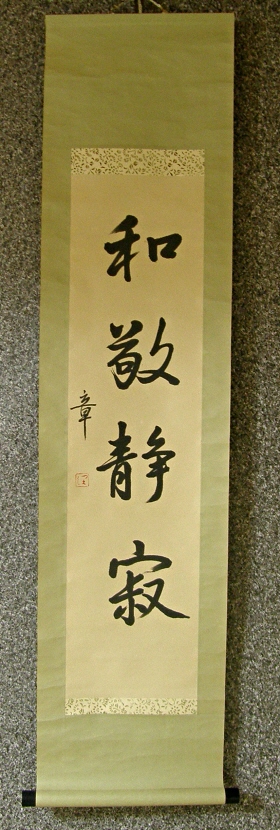 和敬静寂
章